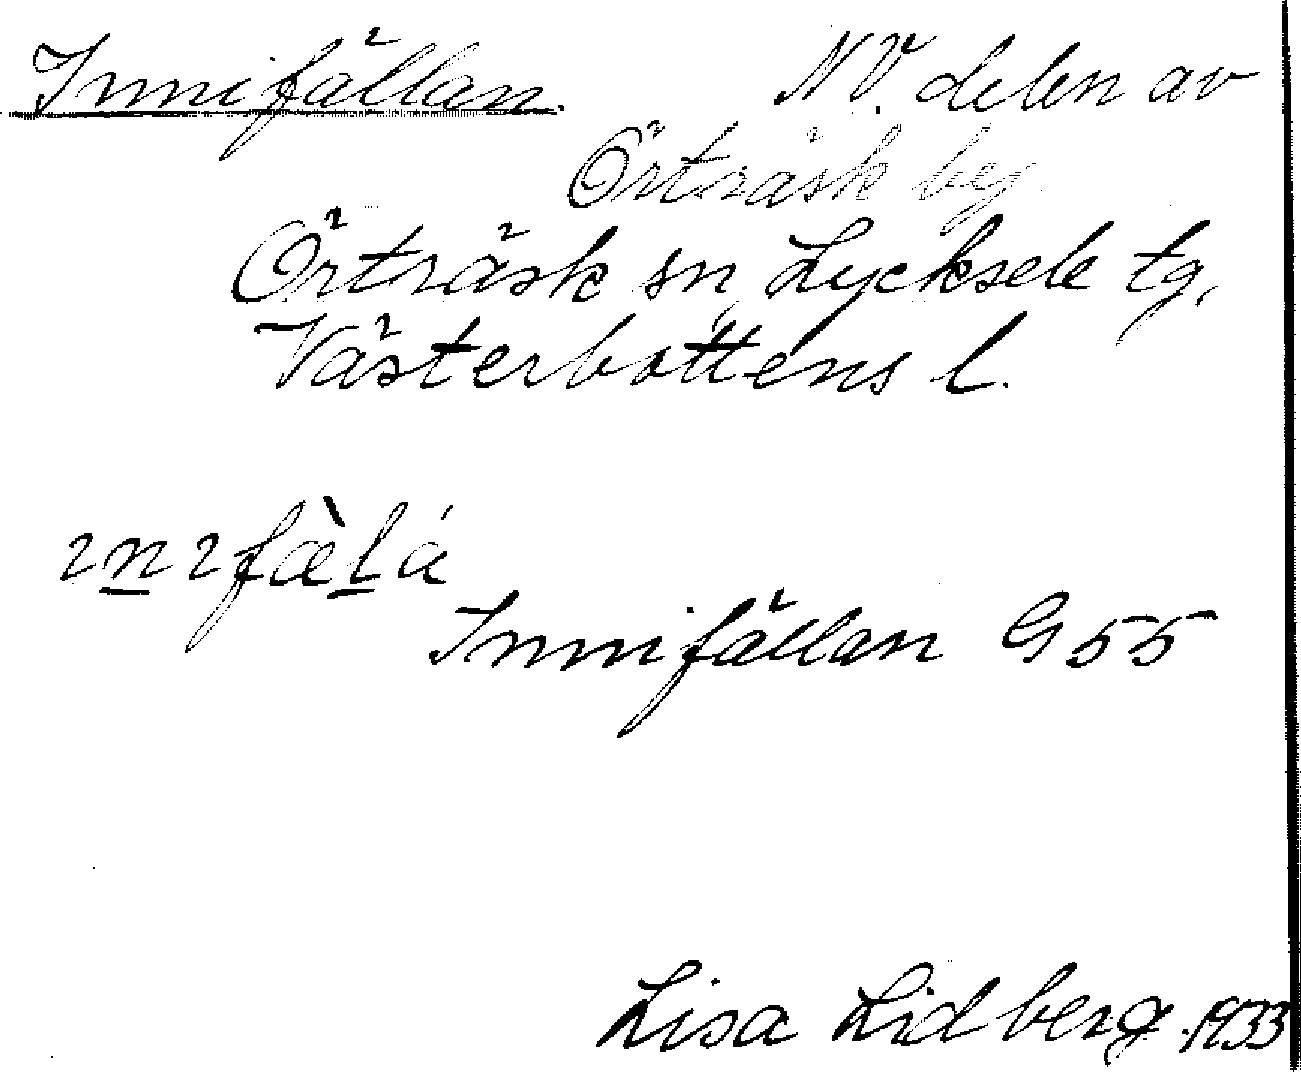 Innifällan. NV. delen av
Örträsk by
Örträsk sn, Lycksele tg,
Västerbottens l.
ınıfæ̀lá
Innifällan G 55
Lisa Lidberg. 1933